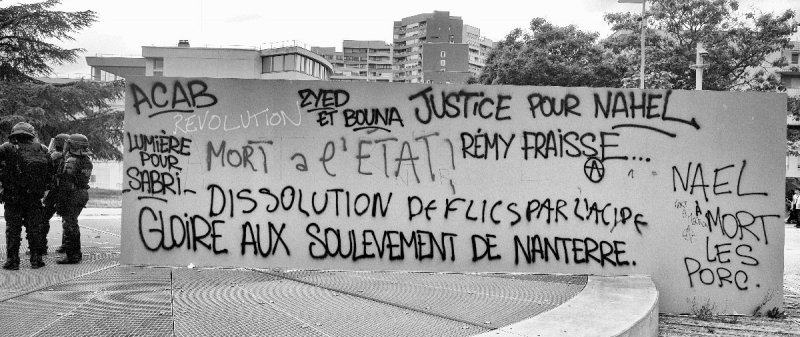 ACAB
REVOLUTION
ZYED
ET BOUNA
JUSTICE POUR NAHEL
LUMIÈRE
POUR
SABRI
MORT a l'ÉTAT!
RÉMY FRAISSE...
DISSOLUTION DE FLICS PAR L'ACIDE
GLOIRE AUX SOULEVEMENT DE NANTERRE.
NAEL
À MORT
LES
PORC.